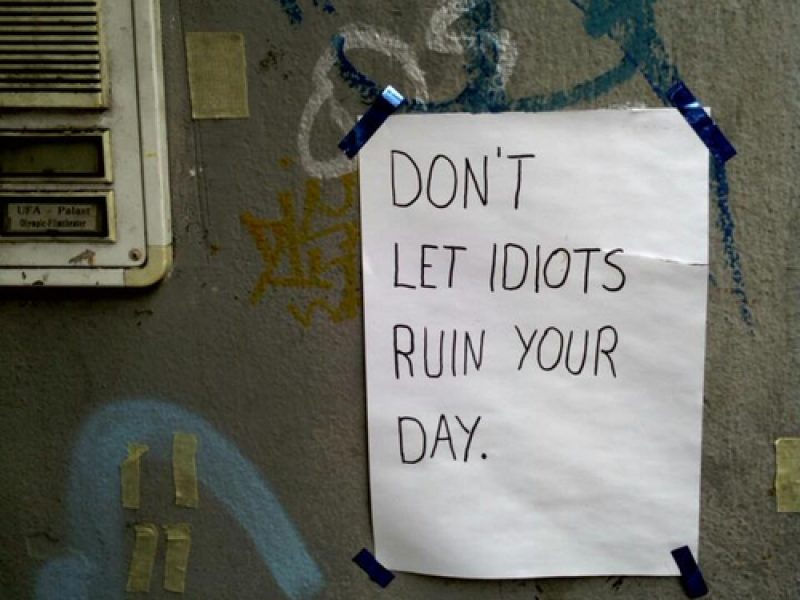 UFA - Palast
Olympic-Filmtheater
DON'T
LET IDIOTS
RUIN YOUR
DAY.